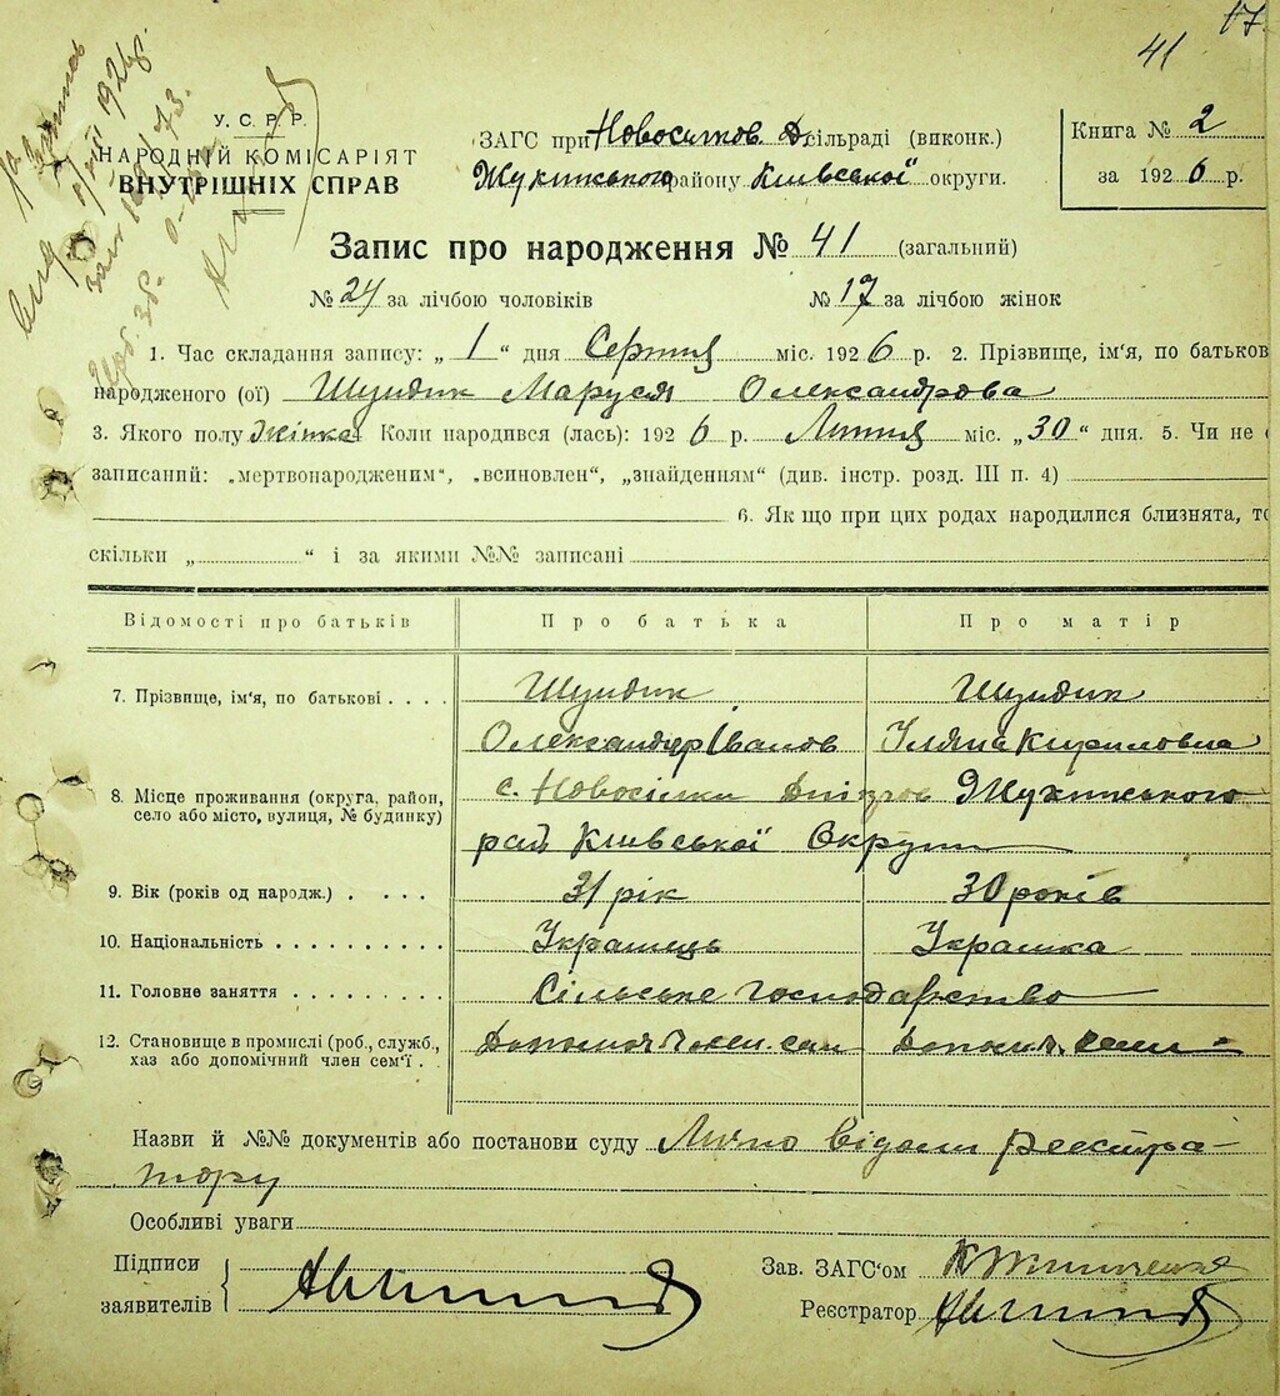 17.
41
У. С. Р. Р.
НАРОДНІЙ КОМІСАРІЯТ
ВНУТРІШНІХ СПРАВ
ЗАГС при Новосілков. Д. сільраді (виконк.)
Жукинського району Київської округи.
Книга № 2
за 1926 р.
Запис про народження № 41 (загальний)
№ 24 за лічбою чоловіків № 17 за лічбою жінок
1. Час складання запису: „ 1 “ дня Серпня міс. 1926 р. 2. Прізвище, ім'я, по батьков
народженого (ої) Шундик Маруся Олександрова
3. Якого полу жінка Коли народився (лась): 1926 р. Липня міс. „30“ дня. 5. Чи не
записаний: „мертвонародженим“, „всиновлен“, „знайденням“ (див. інстр. розд. III п. 4)
6. Як що при цих родах народилися близнята, то
скільки „ “ і за якими №№ записані
Відомості про батьків Про батька Про матір
7. Прізвище, ім'я, по батькові . . . . Шундик Шундик
Олександр Іванов Уляна Кириловна
8. Місце проживання (округа, район, с. Новосілки Дніпров Жукинського
село або місто, вулиця, № будинку)
рай Київської Округи
9. Вік (років од народж.) . . . . 31 рік 30 років
10. Національність . . . . . . . . . . Українець Українка
11. Головне заняття . . . . . . . . . Сільське господарство
12. Становище в промислі (роб., служб.,
хаз або допомічний член сем'ї . .
Назви й №№ документів або постанови суду Лично відомі реєстра-
тору
Особливі уваги
Підписи
заявителів
Зав. ЗАГС'ом
Реєстратор